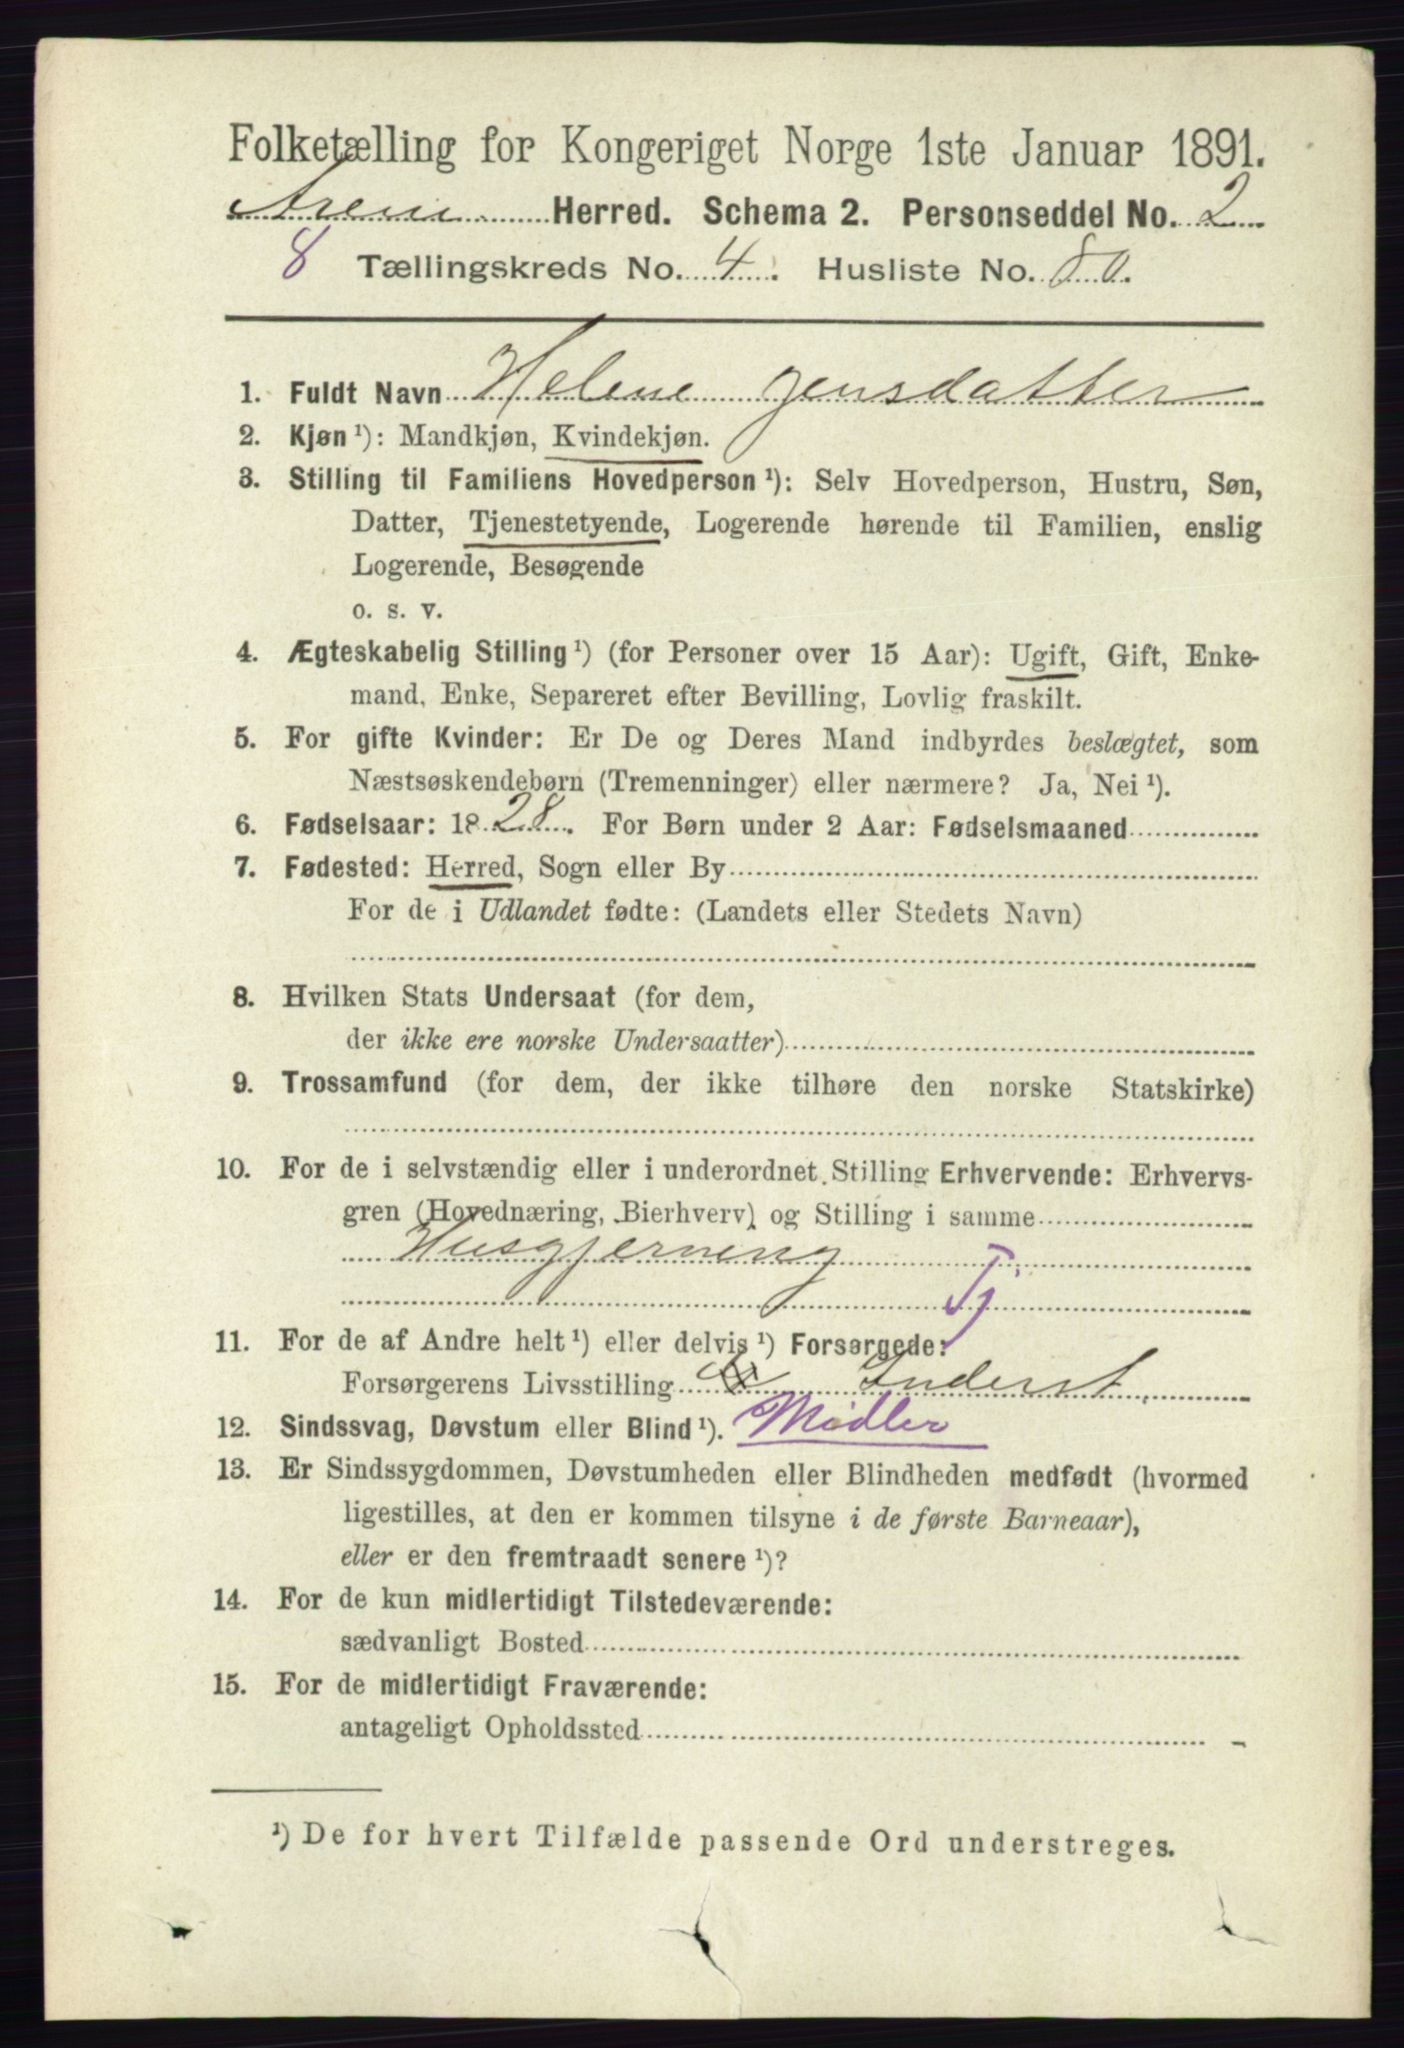 Folketælling for Kongeriget Norge 1ste Januar 1891.
Herred. Schema 2. Personseddel No. 2
8 Tællingskreds No. 4. Husliste No. 80.
1. Fuldt Navn Helene Jensdatter
2. Kjøn ¹): Mandkjøn, Kvindekjøn.
3. Stilling til Familiens Hovedperson ¹): Selv Hovedperson, Hustru, Søn,
Datter, Tjenestetyende, Logerende hørende til Familien, enslig
Logerende, Besøgende
o. s. v.
4. Ægteskabelig Stilling ¹) (for Personer over 15 Aar): Ugift, Gift, Enke-
mand, Enke, Separeret efter Bevilling, Lovlig fraskilt.
5. For gifte Kvinder: Er De og Deres Mand indbyrdes beslægtet, som
Næstsøskendebørn (Tremenninger) eller nærmere? Ja, Nei ¹).
6. Fødselsaar: 1828. For Børn under 2 Aar: Fødselsmaaned
7. Fødested: Herred, Sogn eller By
For de i Udlandet fødte: (Landets eller Stedets Navn)
8. Hvilken Stats Undersaat (for dem,
der ikke ere norske Undersaatter)
9. Trossamfund (for dem, der ikke tilhøre den norske Statskirke)
10. For de i selvstændig eller i underordnet Stilling Erhvervende: Erhvervs-
gren (Hovednæring, Bierhverv) og Stilling i samme
Husgjerning
Tj
11. For de af Andre helt ¹) eller delvis ¹) Forsørgede:
Forsørgerens Livsstilling Inderst
12. Sindssvag, Døvstum eller Blind ¹). Midler
13. Er Sindssygdommen, Døvstumheden eller Blindheden medfødt (hvormed
ligestilles, at den er kommen tilsyne i de første Barneaar),
eller er den fremtraadt senere ¹)?
14. For de kun midlertidigt Tilstedeværende:
sædvanligt Bosted
15. For de midlertidigt Fraværende:
antageligt Opholdssted
¹) De for hvert Tilfælde passende Ord understreges.